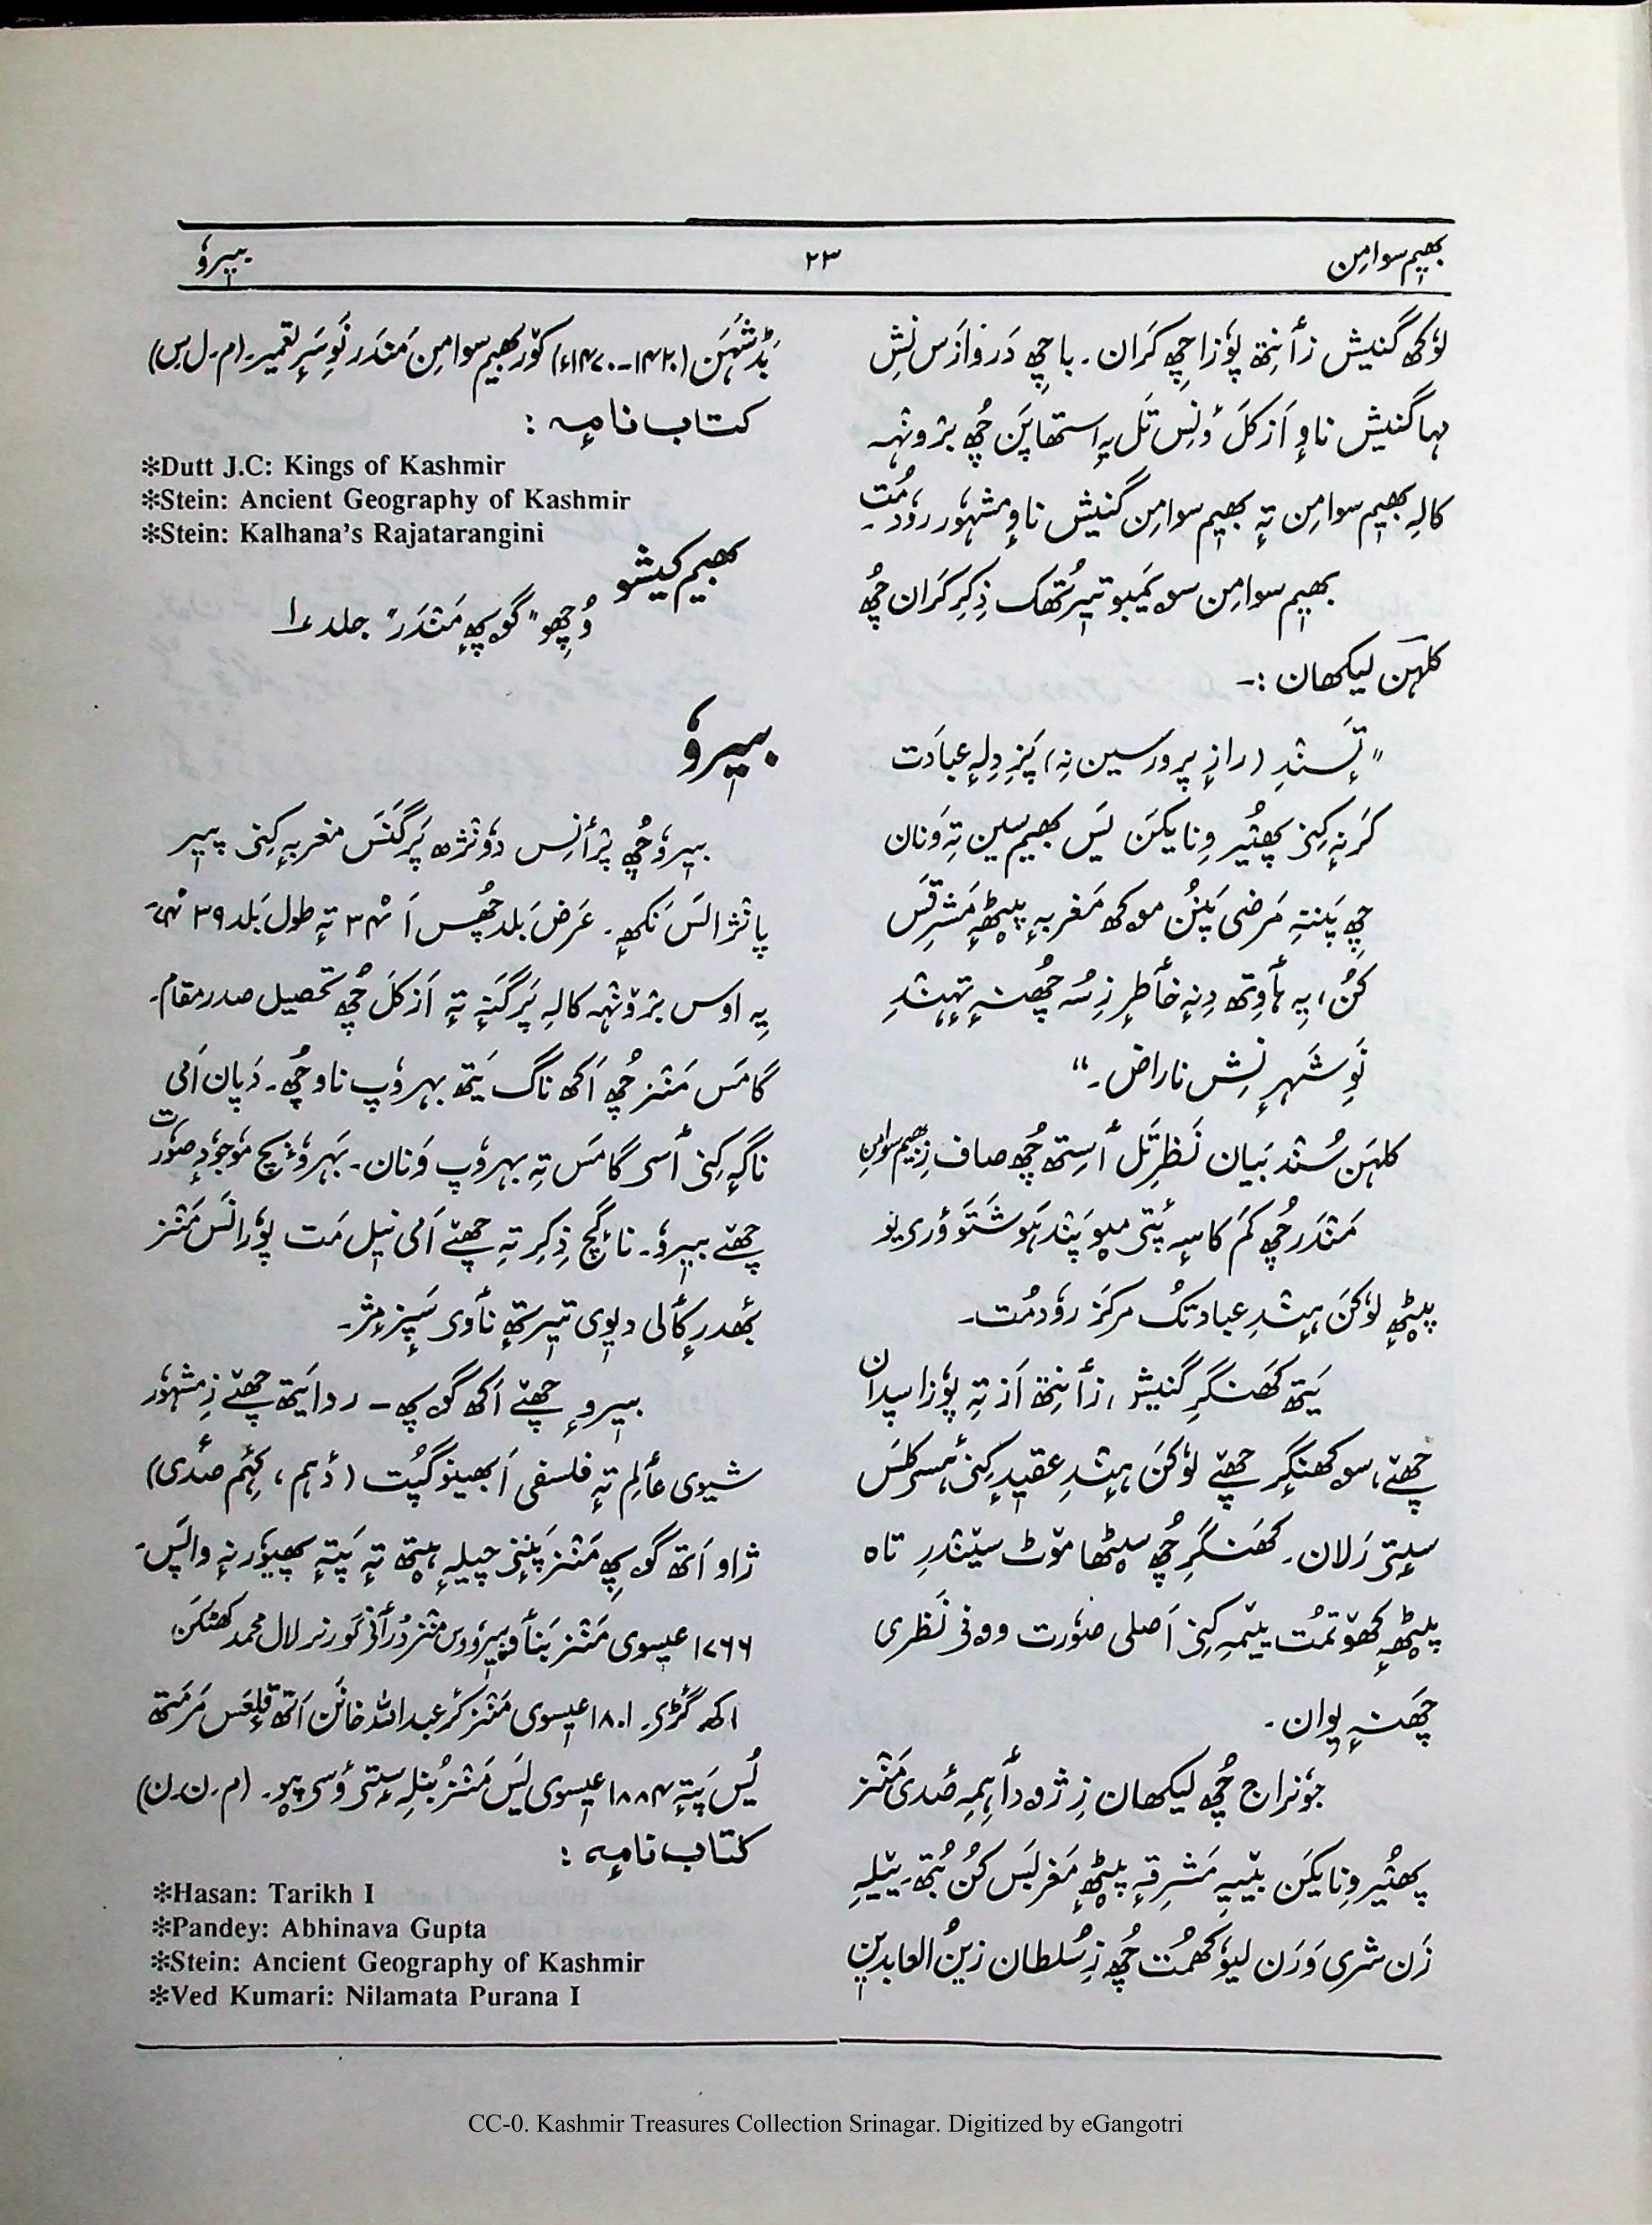 بھیٖم سوامِن
۲۳
بیٖروٗ
لوٗکھ گنیش زأنِتھ پوٗزا چِھ کَران۔ باچھِ دَروازَس نِش
مہا گنیش ناوِ اَزکَل وُنِس تَل یہِ استھاپَن چُھ برٛونٛہہ
کالہِ بھیٖم سوامِن تہٕ بھیٖم سوامِن گنیش ناوِ مشہوٗر روٗدمُت۔
بھیٖم سوامِن سوٕیَمبو تیٖرتُھک ذِکِر کَران چُھ
کلہَن لیکھان :۔
"تَسٕنٛدِ (رازٕ پرورسین نِہ) پَزِ دِلہٕ عبادَت
کَرنہٕ کِنۍ پھٔٹیر وِنایکَن یَس بھیٖم سین تہِ وَنان
چِھ پَننہِ مَرضی پَنُن موکھ مَغربہٕ پؠٹھٕ مَشرِقَس
کُن، یہِ ہأوِتھ دِنہٕ خأطرٕ زِ سُہ چُھنہٕ تِہٕنٛدِ
نَوِ شَہرٕ نِش ناراض۔"
کلہَن سُنٛد بَیان نَظرِ تَل أستھ چُھ صاف زِ بھیٖم سوامِن
مَنٛدَر چُھ کَم کاسہٕ پٔتۍ میٚو پَنٛدہَو شَتَو ؤری یو
پؠٹھٕ لوٗکَن ہٕنٛدِ عبادتُک مرکَز روٗدمُت۔
یَتھ کَھنگَرِ گنیش زأنِتھ اَز تہِ پوٗزا سپدان
چھےٚ، سو کھنگٕر چھےٚ لوٗکَن ہٕنٛدِ عقیدٕ کِنۍ
سٟتۍ رَلان۔ کَھنگَرِ چُھ سؠٹھا موٚٹ سیٚنٛدرِ تاہ
پؠٹھٕ کھوٚتمُت ییٚمہِ کِنۍ اَصلی صوٗرت وونۍ نَظرِی
چَھنہٕ یِوان۔
جوٗنراج چُھ لیکھان زِ ژۄدأہِمہِ صَدی مَنٛز
پھٔٹیر وِنایکَن بیٚیہِ مَشرِقہٕ پؠٹھٕ مَغربَس کُن بُتھ۔ ییٚلہِ
زَن شری وَرَن لیوٗکھمُت چُھ زِ سُلطان زینُ العابدیٖن
بَڈشَہَن (۱۴۲۰-۱۴۷۰ء) کوٚر بھیٖم سوامِن مَنٛدَر نَوِ سَرٕ تعمیر۔ (م۔ل۔س)
کتاب نامہٕ :
*Dutt J.C: Kings of Kashmir
*Stein: Ancient Geography of Kashmir
*Stein: Kalhana's Rajatarangini
بھیم کیشو
وُچھِو "گۄپھہٕ مَنٛدَر" جلد ۱؍
بیٖروٗ
بیٖروٗ چُھ پرٛأنِس دوٗنٛژھ پَرگَنَس مغربہٕ کِنۍ پیٖر
پانٛژالَس نَکھہٕ۔ عَرض بَلد چُھس ۳۴ تہٕ طول بَلد ۳۹
یہِ اوس برٛونٛہہ کالہِ پَرگَنہٕ تہٕ اَزکَل چُھ تحصیل صدر مقام۔
گامَس مَنٛز چُھ اَکھ ناگ یَتھ بہروٗپ ناو چُھ۔ دَپان اَمی
ناگہٕ کِنۍ أسۍ گامَس تہِ بہروٗپ وَنان۔ بَہروٗپٕچ موٗجوٗدٕ صوٗرت
چھےٚ بیٖروٗ۔ ناگٕچ ذِکِر تہِ چھےٚ اَمی نیٖل مَت پوٗرانَس مَنٛز
بٔھدرٕ کألی دیوی تیٖرتھٕ نأوی سَپٕزمٕژ۔
بیٖروٕ چھےٚ اَکھ گۄپھ – روایَتھ چھےٚ زِ مشہوٗر
شیوی عألِم تہٕ فلسفی اَبھینوگپُت (دٔہم، کٔہِم صَدی)
ژاو اَتھ گۄپھِ مَنٛز پَنٕنۍ چیلہٕ ہیٚتھ تہٕ پَتہٕ پھیوٗر نہٕ واپَس۔
۱۷۶۶ عیسوی مَنٛز بَنأو بیٖروٗوس مَنٛز دُرأنۍ گورنر لال محمد کھٹکَن
اکھ گَڑی۔ ۱۸۰۱ عیسوی مَنٛز کٔر عبداللہ خانَن اَتھ قِلعَس مَرمَتھ
یُس پَتہٕ ۱۸۸۴ عیسوی یَس مَنٛز بُنلہِ سٟتۍ وٕسۍ پیوٚ۔ (م۔ن۔ن)
کتاب نامہٕ :
*Hasan: Tarikh I
*Pandey: Abhinava Gupta
*Stein: Ancient Geography of Kashmir
*Ved Kumari: Nilamata Purana I
CC-0. Kashmir Treasures Collection Srinagar. Digitized by eGangotri